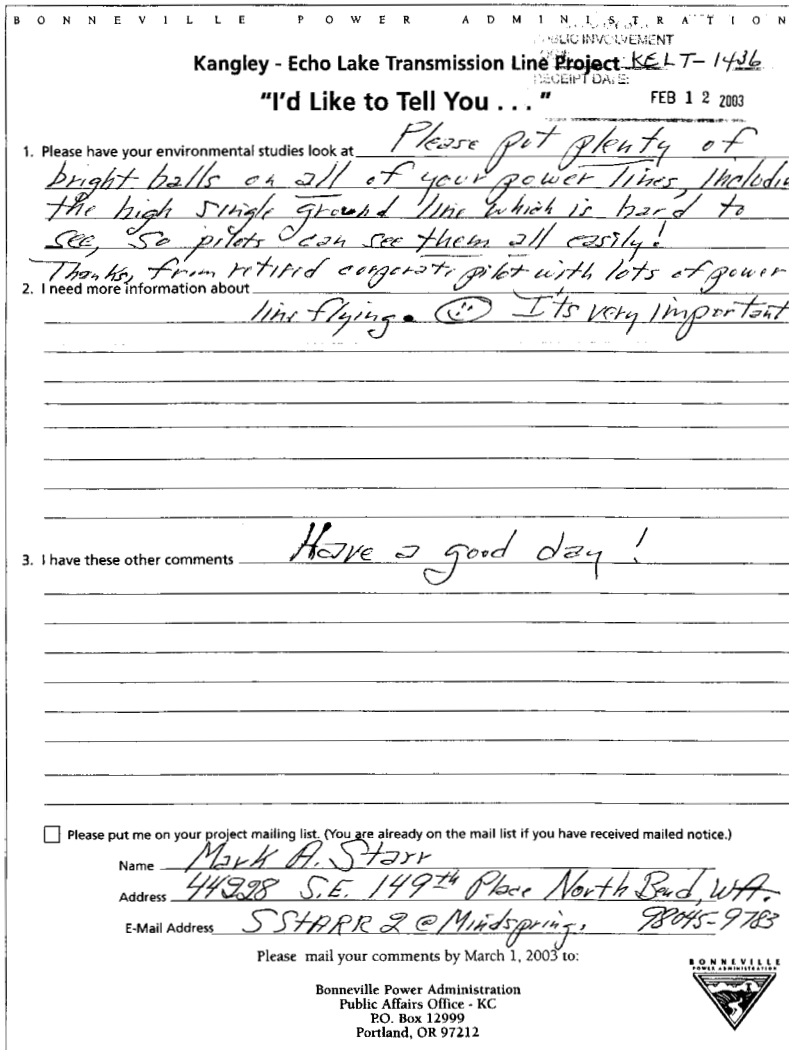 BONNEVILLE POWER ADMINISTRATION
PUBLIC INVOLVEMENT
Kangley - Echo Lake Transmission Line Project KELT-1436
RECEIPT DATE:
"I'd Like to Tell You . . . " FEB 12 2003
1. Please have your environmental studies look at Please put plenty of
bright balls on all of your power lines, Includin
the high single ground line which is hard to
see, So pilots can see them all easily!
Thanks, from retired corporate pilot with lots of power
2. I need more information about
line flying. It's very important
3. I have these other comments Have a good day!
Please put me on your project mailing list. (You are already on the mail list if you have received mailed notice.)
Name Mark A. Starr
Address 44228 S.E. 149th Place North Bend, WA.
E-Mail Address SSTARR2@Mindspring. 98045-9783
Please mail your comments by March 1, 2003 to:
Bonneville Power Administration
Public Affairs Office - KC
P.O. Box 12999
Portland, OR 97212
BONNEVILLE
POWER ADMINISTRATION